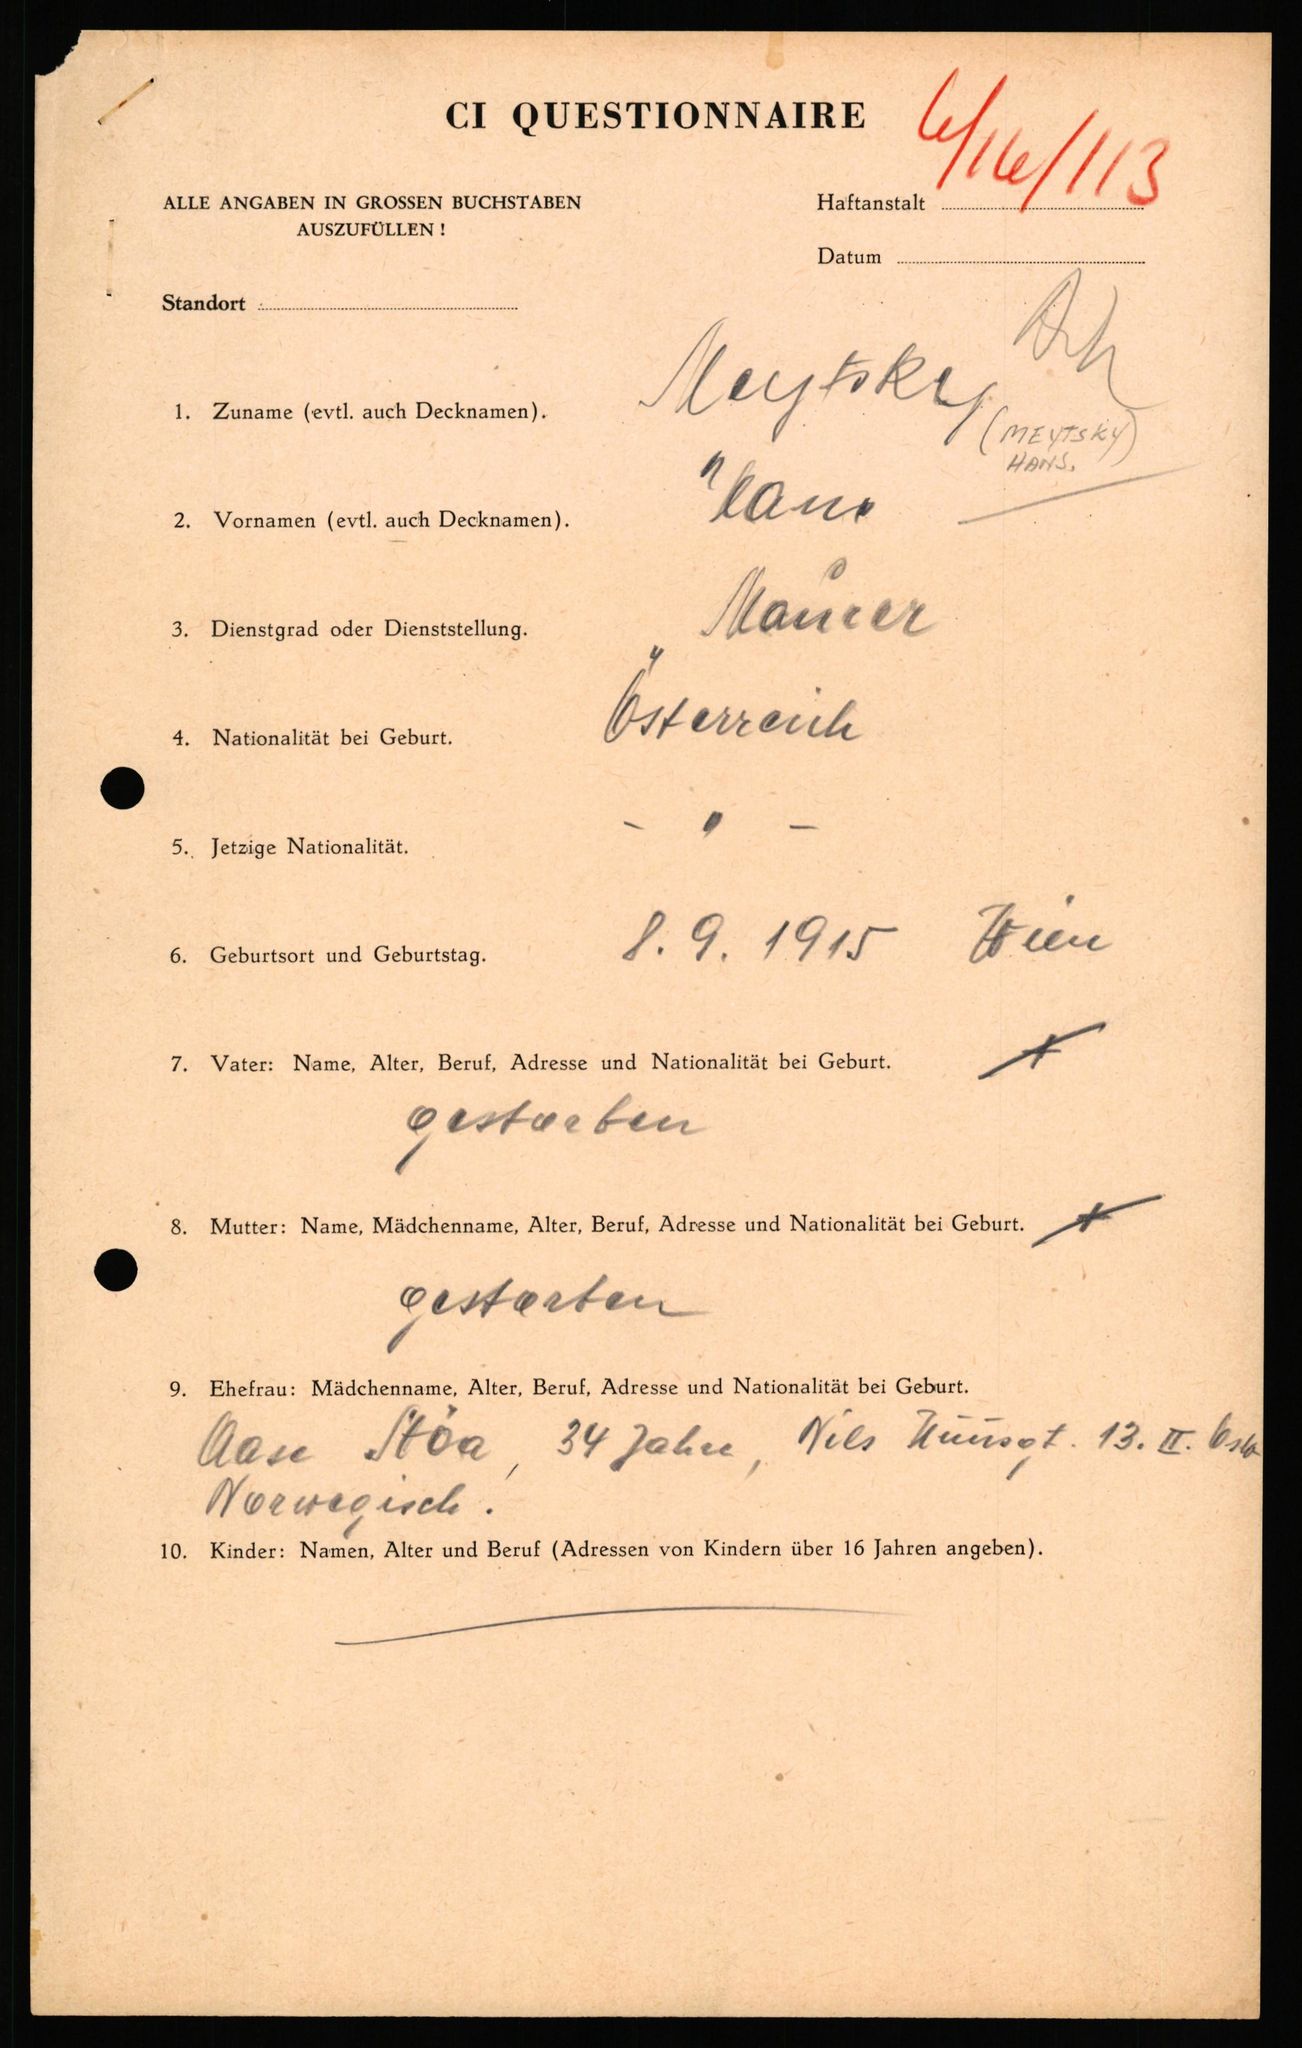 CI QUESTIONNAIRE
6/16/113
ALLE ANGABEN IN GROSSEN BUCHSTABEN
AUSZUFÜLLEN !
Haftanstalt
Datum
Standort
1. Zuname (evtl. auch Decknamen). Meytsky
(MEYTSKY)
HANS.
2. Vornamen (evtl. auch Decknamen). Hans
3. Dienstgrad oder Dienststellung. Maurer
4. Nationalität bei Geburt. Österreich
5. Jetzige Nationalität. - " -
6. Geburtsort und Geburtstag. 8. 9. 1915 Wien
7. Vater: Name, Alter, Beruf, Adresse und Nationalität bei Geburt.
gestorben
8. Mutter: Name, Mädchenname, Alter, Beruf, Adresse und Nationalität bei Geburt.
gestorben
9. Ehefrau: Mädchenname, Alter, Beruf, Adresse und Nationalität bei Geburt.
Aase Stöa, 34 Jahre, Nils 13. II. Oslo
Norwegisch.
10. Kinder: Namen, Alter und Beruf (Adressen von Kindern über 16 Jahren angeben).